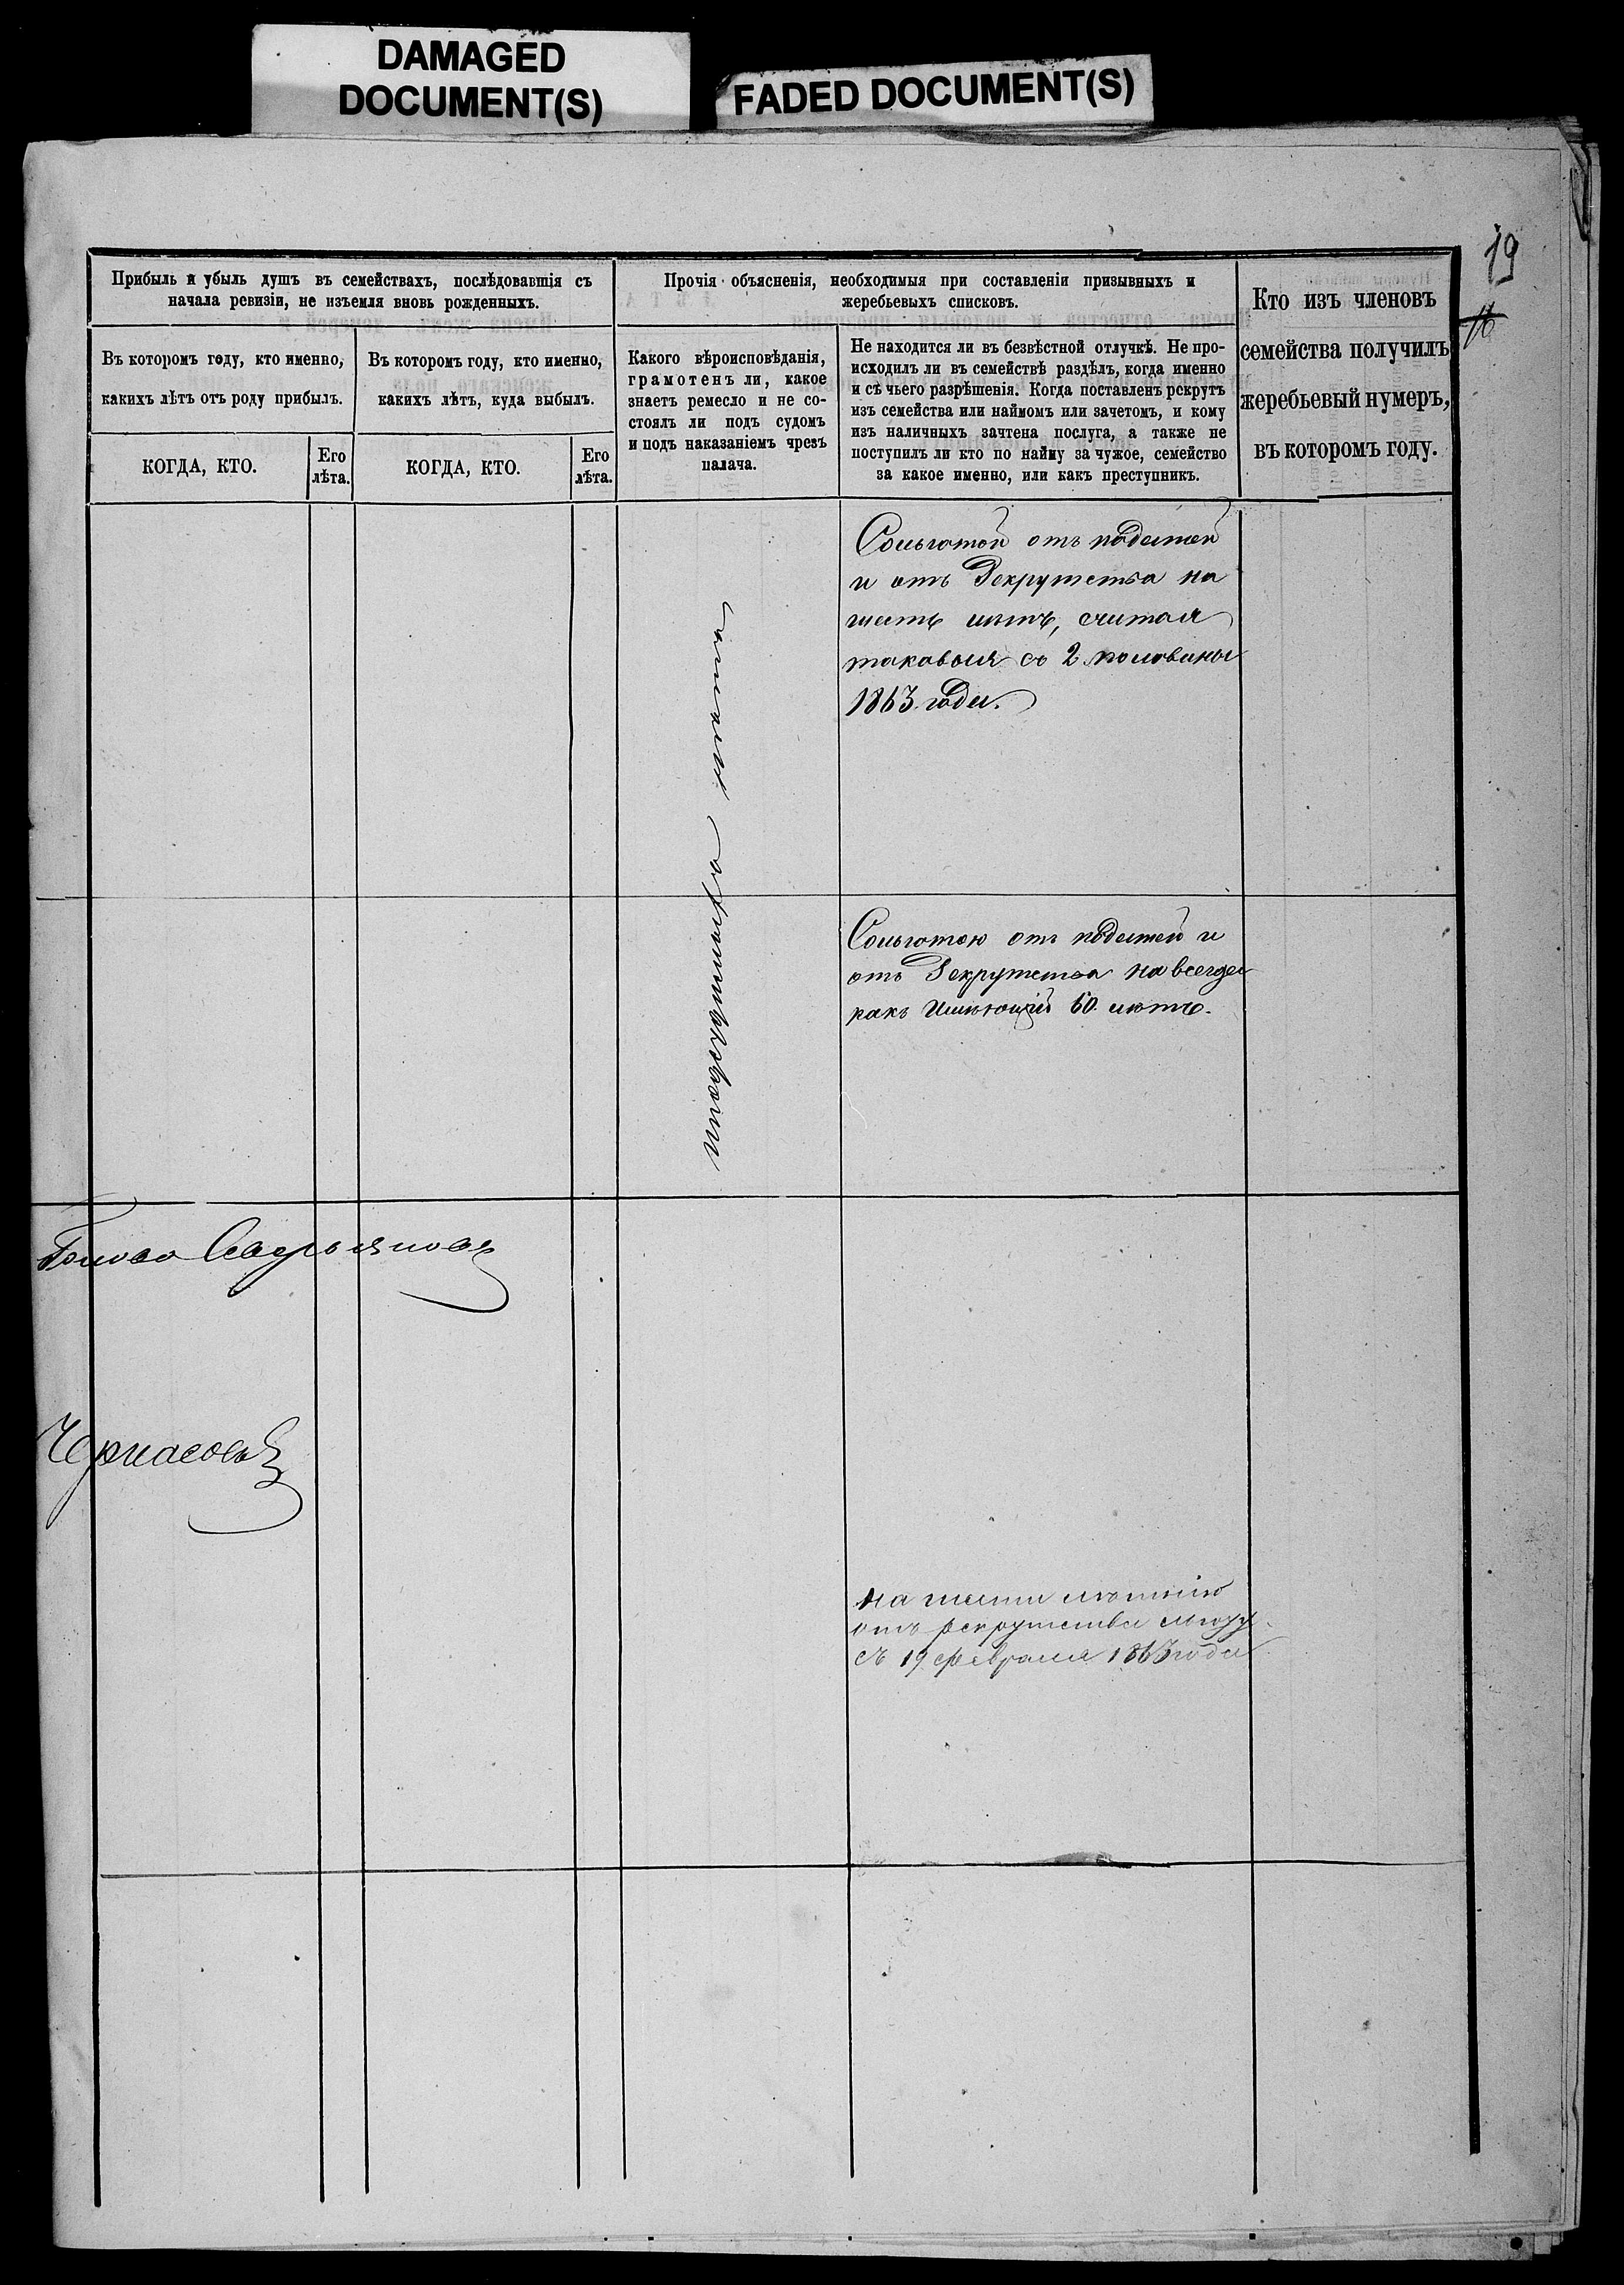 DAMAGED
DOCUMENT(S)
FADED DOCUMENT(S)
19
16
Прибыль и убыль душъ въ семействахъ, послѣдовавшія съ
начала ревизіи, не изъемля вновь рожденныхъ.
Въ которомъ году, кто именно,
какихъ лѣтъ отъ роду прибылъ.
КОГДА, КТО.
Его
лѣта.
Въ которомъ году, кто именно,
какихъ лѣтъ, куда выбылъ.
КОГДА, КТО.
Его
лѣта.
Прочія объясненія, необходимыя при составленіи призывныхъ и
жеребьевыхъ списковъ.
Какого вѣроисповѣданія,
грамотенъ ли, какое
знаетъ ремесло и не со-
стоялъ ли подъ судомъ
и подъ наказаніемъ чрезъ
палача.
Не находится ли въ безвѣстной отлучкѣ. Не про-
исходилъ ли въ семействѣ раздѣлъ, когда именно
и съ чьего разрѣшенія. Когда поставленъ рекрутъ
изъ семейства или наймомъ или зачетомъ, и кому
изъ наличныхъ зачтена послуга, а также не
поступилъ ли кто по найму за чужое, семейство
за какое именно, или какъ преступникъ.
Кто изъ членовъ
семейства получилъ
жеребьевый нумеръ,
въ которомъ году.
Сольготой отъ податей
и отъ Рекрутства на
шесть лѣтъ, считая
таковыя съ 2 половины
1863 года.
Сольготою отъ податей и
отъ Рекрутства на всегда
какъ Имѣющій 60 лѣтъ.
Голова
Черкасовъ
на шести лѣтнію
отъ рекрутства
съ 19 февраля 1863 года